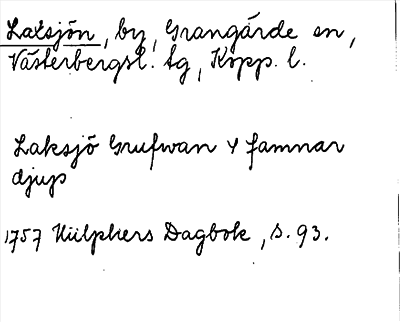 Laksjön, by, Grangärde sn,
Västerbergsl. tg, Kopp. l.
Laksjö Grufwan 4 famnar
djup
1757 Hülphers Dagbok, s. 93.